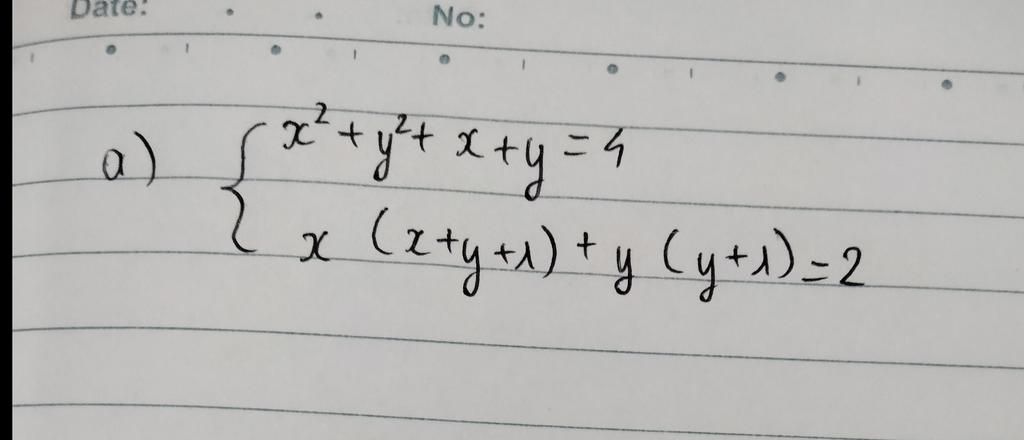 Date: No:
a) { x² + y² + x + y = 4
x (x + y + 1) + y (y + 1) = 2